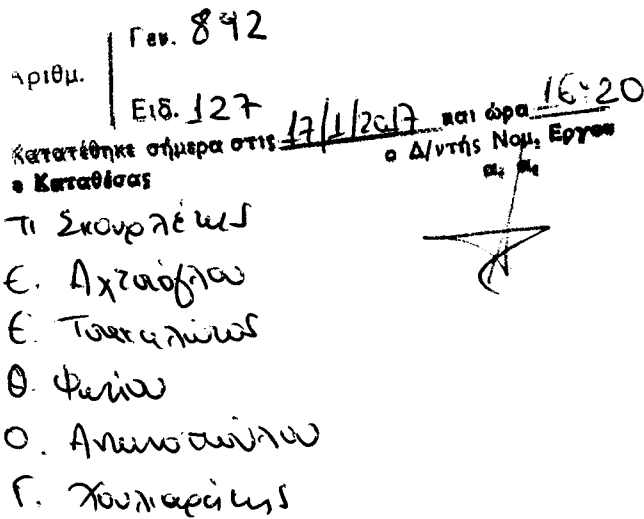 Αριθμ.
Γεν. 892
Ειδ. 127
Κατατέθηκε σήμερα στις 17/1/2017 και ώρα 16:20
ο Καταθέσας
ο Δ/ντής Νομ. Εργου
α. α.
Π Σκουρλέτης
Ε. Αχτσιόγλου
Ε. Τσακαλώτος
Θ. Φωτίου
Ο. Αντωνοπούλου
Γ. Χουλιαράκης